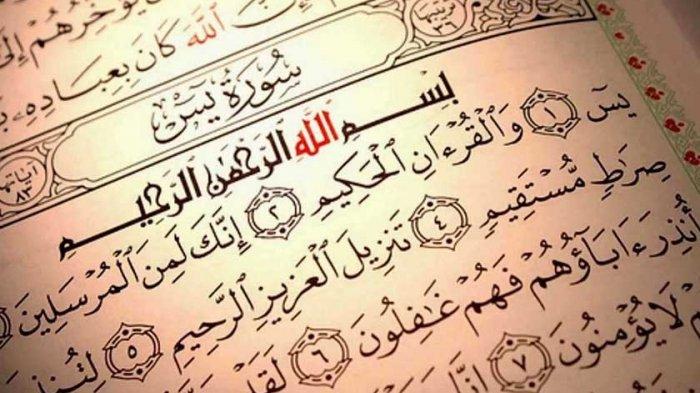 يُؤَخِّرُهُمْ إِلَىٰ
ٱللَّهَ كَانَ بِعِبَادِهِۦ
سُورَةُ يسٓ
ءَايَاتُهَا ٨٣
بِسْمِ ٱللَّهِ ٱلرَّحْمَٰنِ ٱلرَّحِيمِ
يسٓ ١ وَٱلْقُرْءَانِ ٱلْحَكِيمِ ٢ إِنَّكَ لَمِنَ ٱلْمُرْسَلِينَ
صِرَٰطٍ مُّسْتَقِيمٍ ٤ تَنزِيلَ ٱلْعَزِيزِ ٱلرَّحِيمِ ٥
أُنذِرَ ءَابَآؤُهُمْ فَهُمْ غَٰفِلُونَ ٦
لَا يُؤْمِنُونَ ٧ إِنَّا